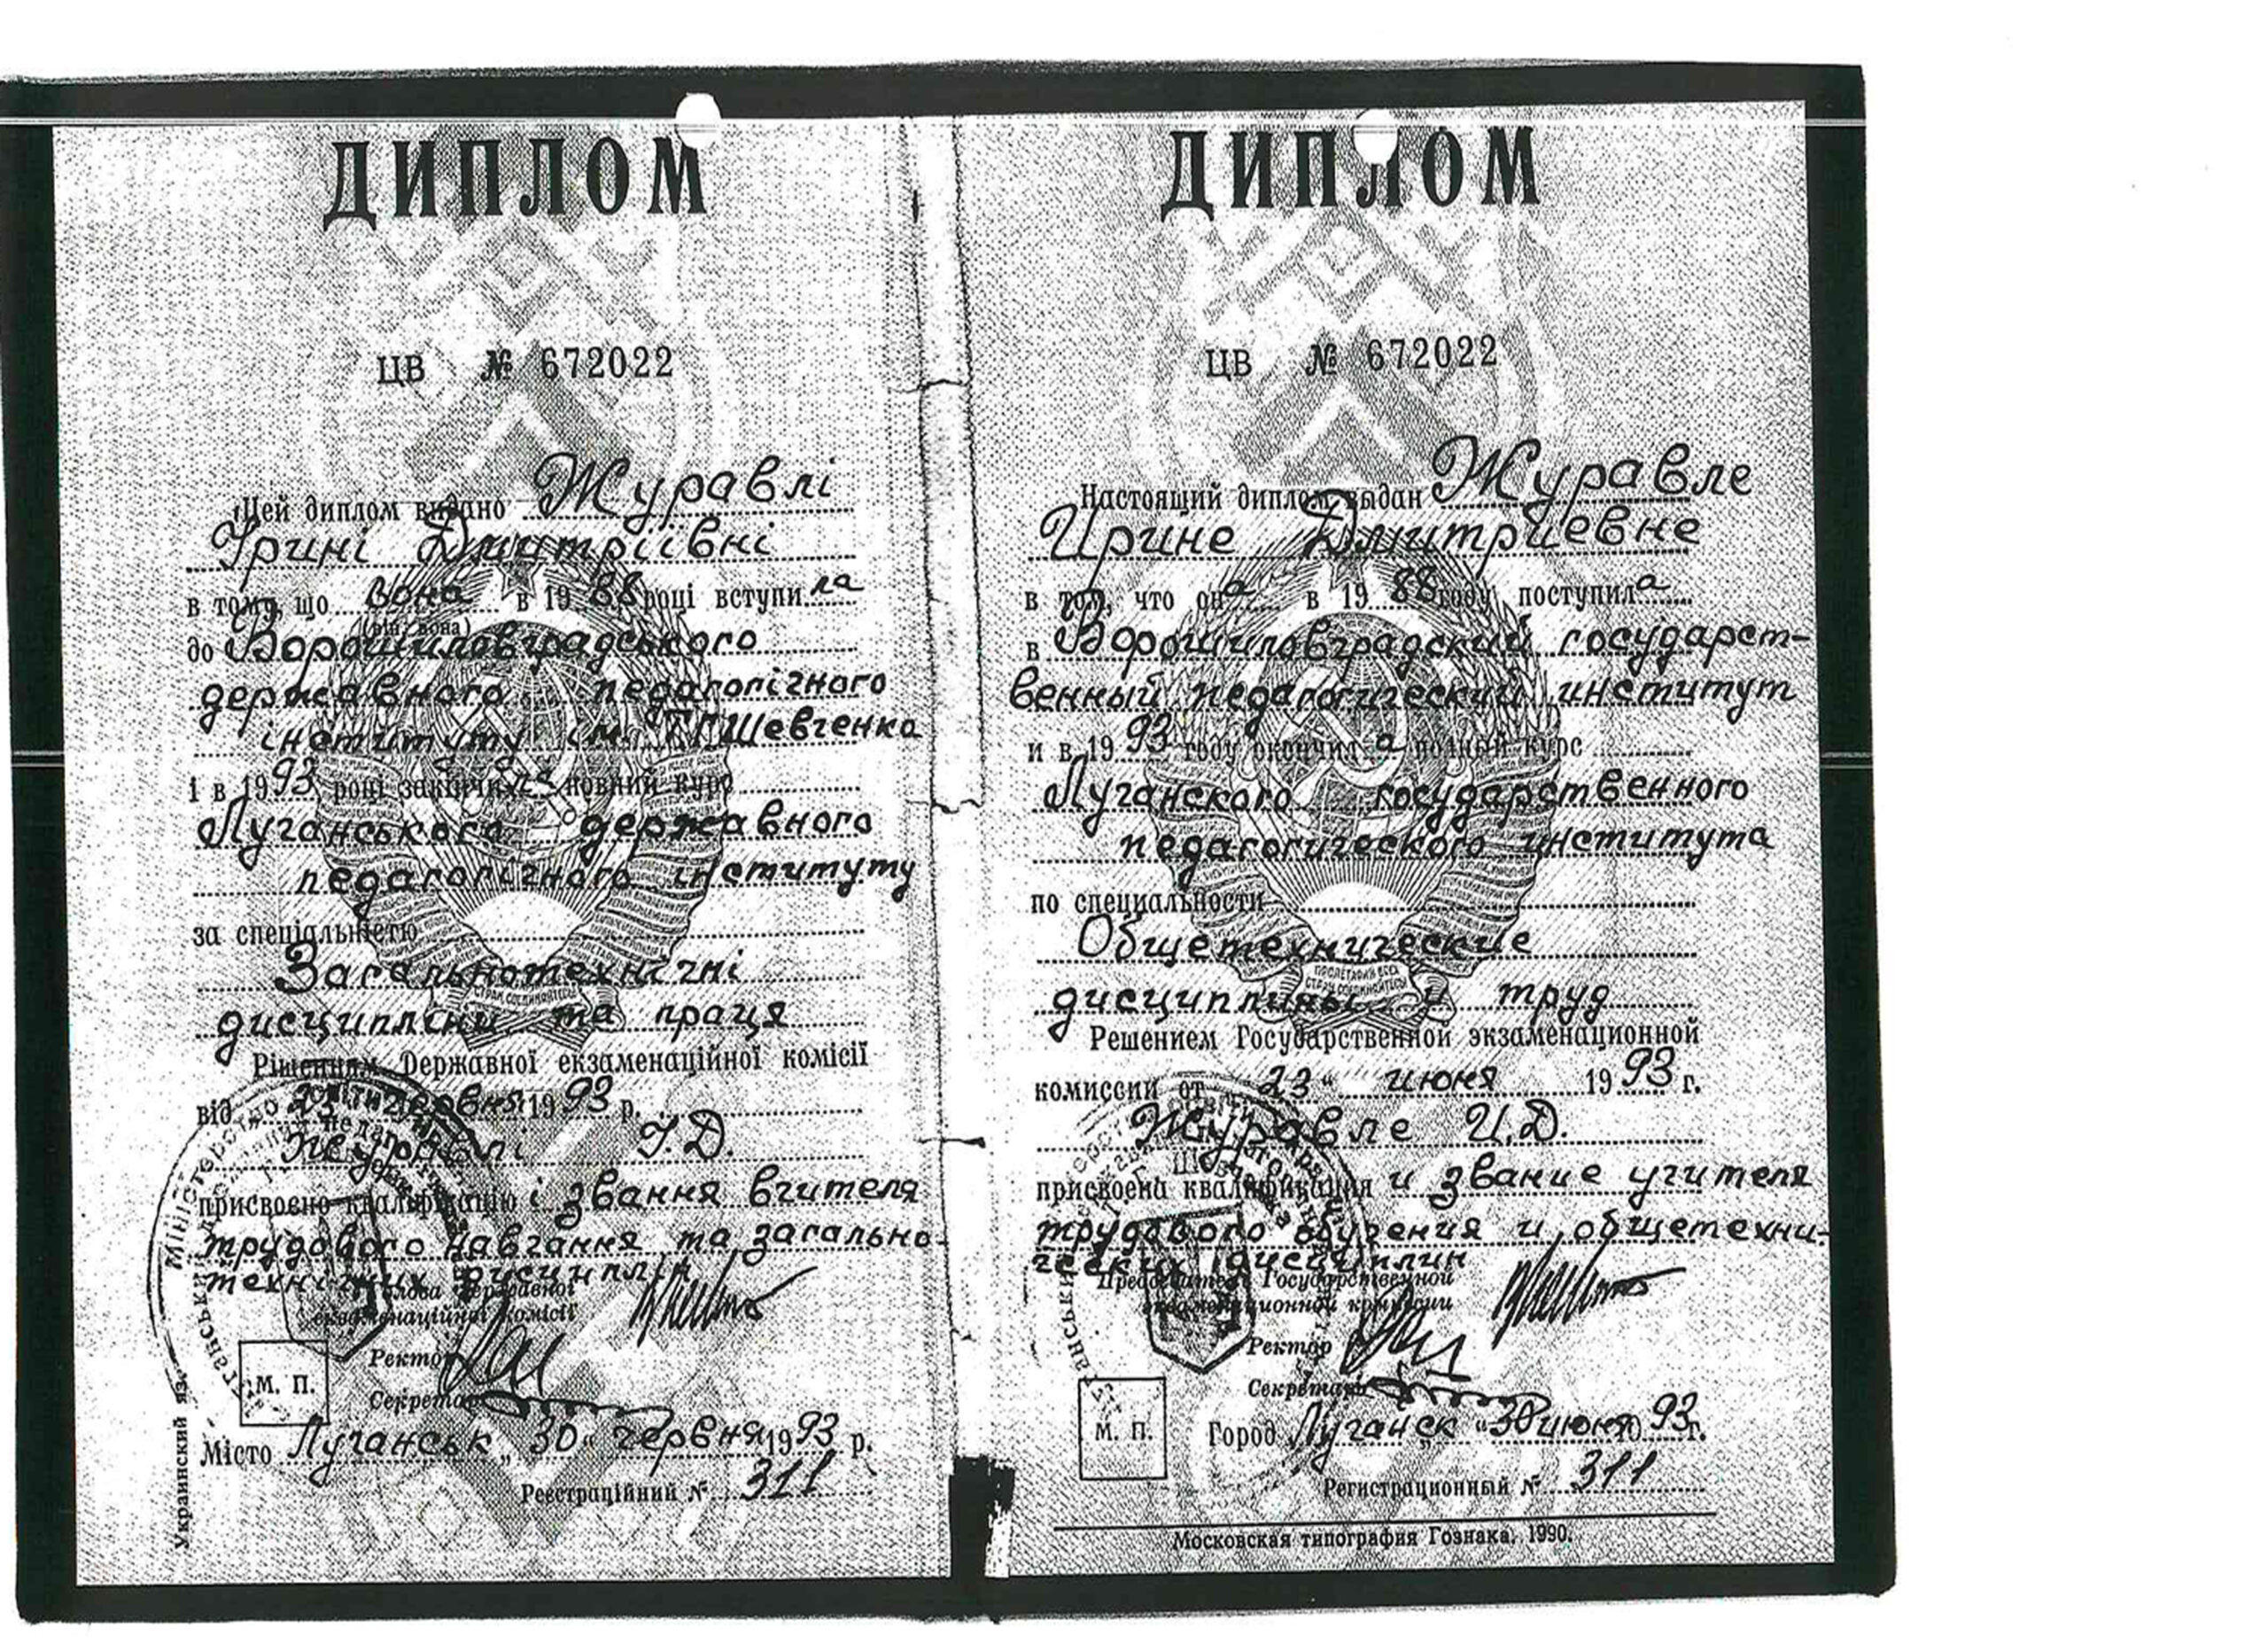 ДИПЛОМ
ЦВ № 672022
Цей диплом видано Журавлі
Ірині Дмитріївні
в тому, що вона в 1988 році вступила
(він, вона)
до Ворошиловградського
державного педагогічного
інституту ім. Т.Г.Шевченка
і в 1993 році закінчила повний курс
Луганського державного
педагогічного інституту
за спеціальністю
Загальнотехнічні
дисципліни та праця
Рішенням Державної екзаменаційної комісії
від 23 червня 1993 р.
Журавлі І.Д.
присвоєно кваліфікацію і звання вчителя
трудового навчання та загально-
технічних дисциплін
Голова Державної
екзаменаційної комісії
Ректор
Секретар
М. П.
Місто Луганськ „30“ червня 1993 р.
Реєстраційний № 311
Украинский яз.
ДИПЛОМ
ЦВ № 672022
Настоящий диплом выдан Журавле
Ирине Дмитриевне
в том, что она в 1988 году поступила
в Ворошиловградский государст-
венный педагогический институт
и в 1993 году окончила полный курс
Луганского государственного
педагогического института
по специальности
Общетехнические
дисциплины и труд
ПРОЛЕТАРИИ ВСЕХ
СТРАН, СОЕДИНЯЙТЕСЬ!
Решением Государственной экзаменационной
комиссии от 23“ июня 1993 г.
Журавле И.Д.
присвоена квалификация и звание учителя
трудового обучения и общетехни-
ческих дисциплин
Председатель Государственной
экзаменационной комиссии
Ректор
Секретарь
М. П.
Город Луганск „30“ июня 1993 г.
Регистрационный № 311
Московская типография Гознака. 1990.